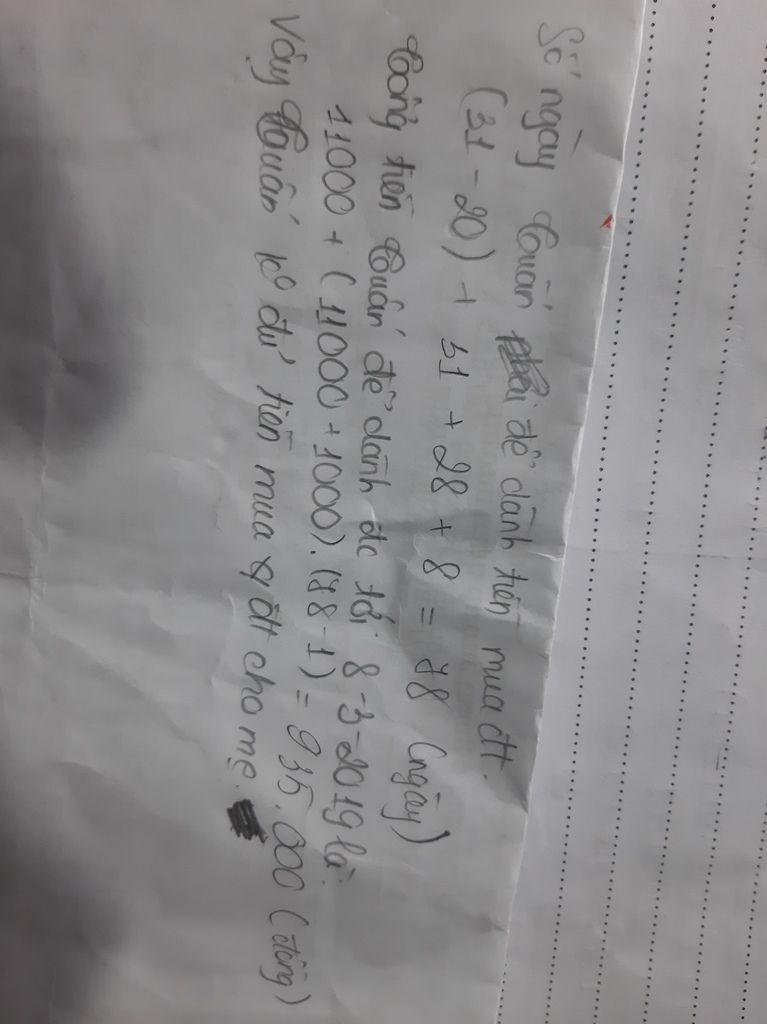 Số ngày Tuấn để dành tiền mua đt.
(31 - 20) + 31 + 28 + 8 = 78 (ngày)
Tổng tiền Tuấn để dành đc tới 8-3-2019 là:
11000 + (11000 + 1000).(78-1) = 935.000 (đồng)
Vậy Tuấn ko đủ tiền mua đt cho mẹ.